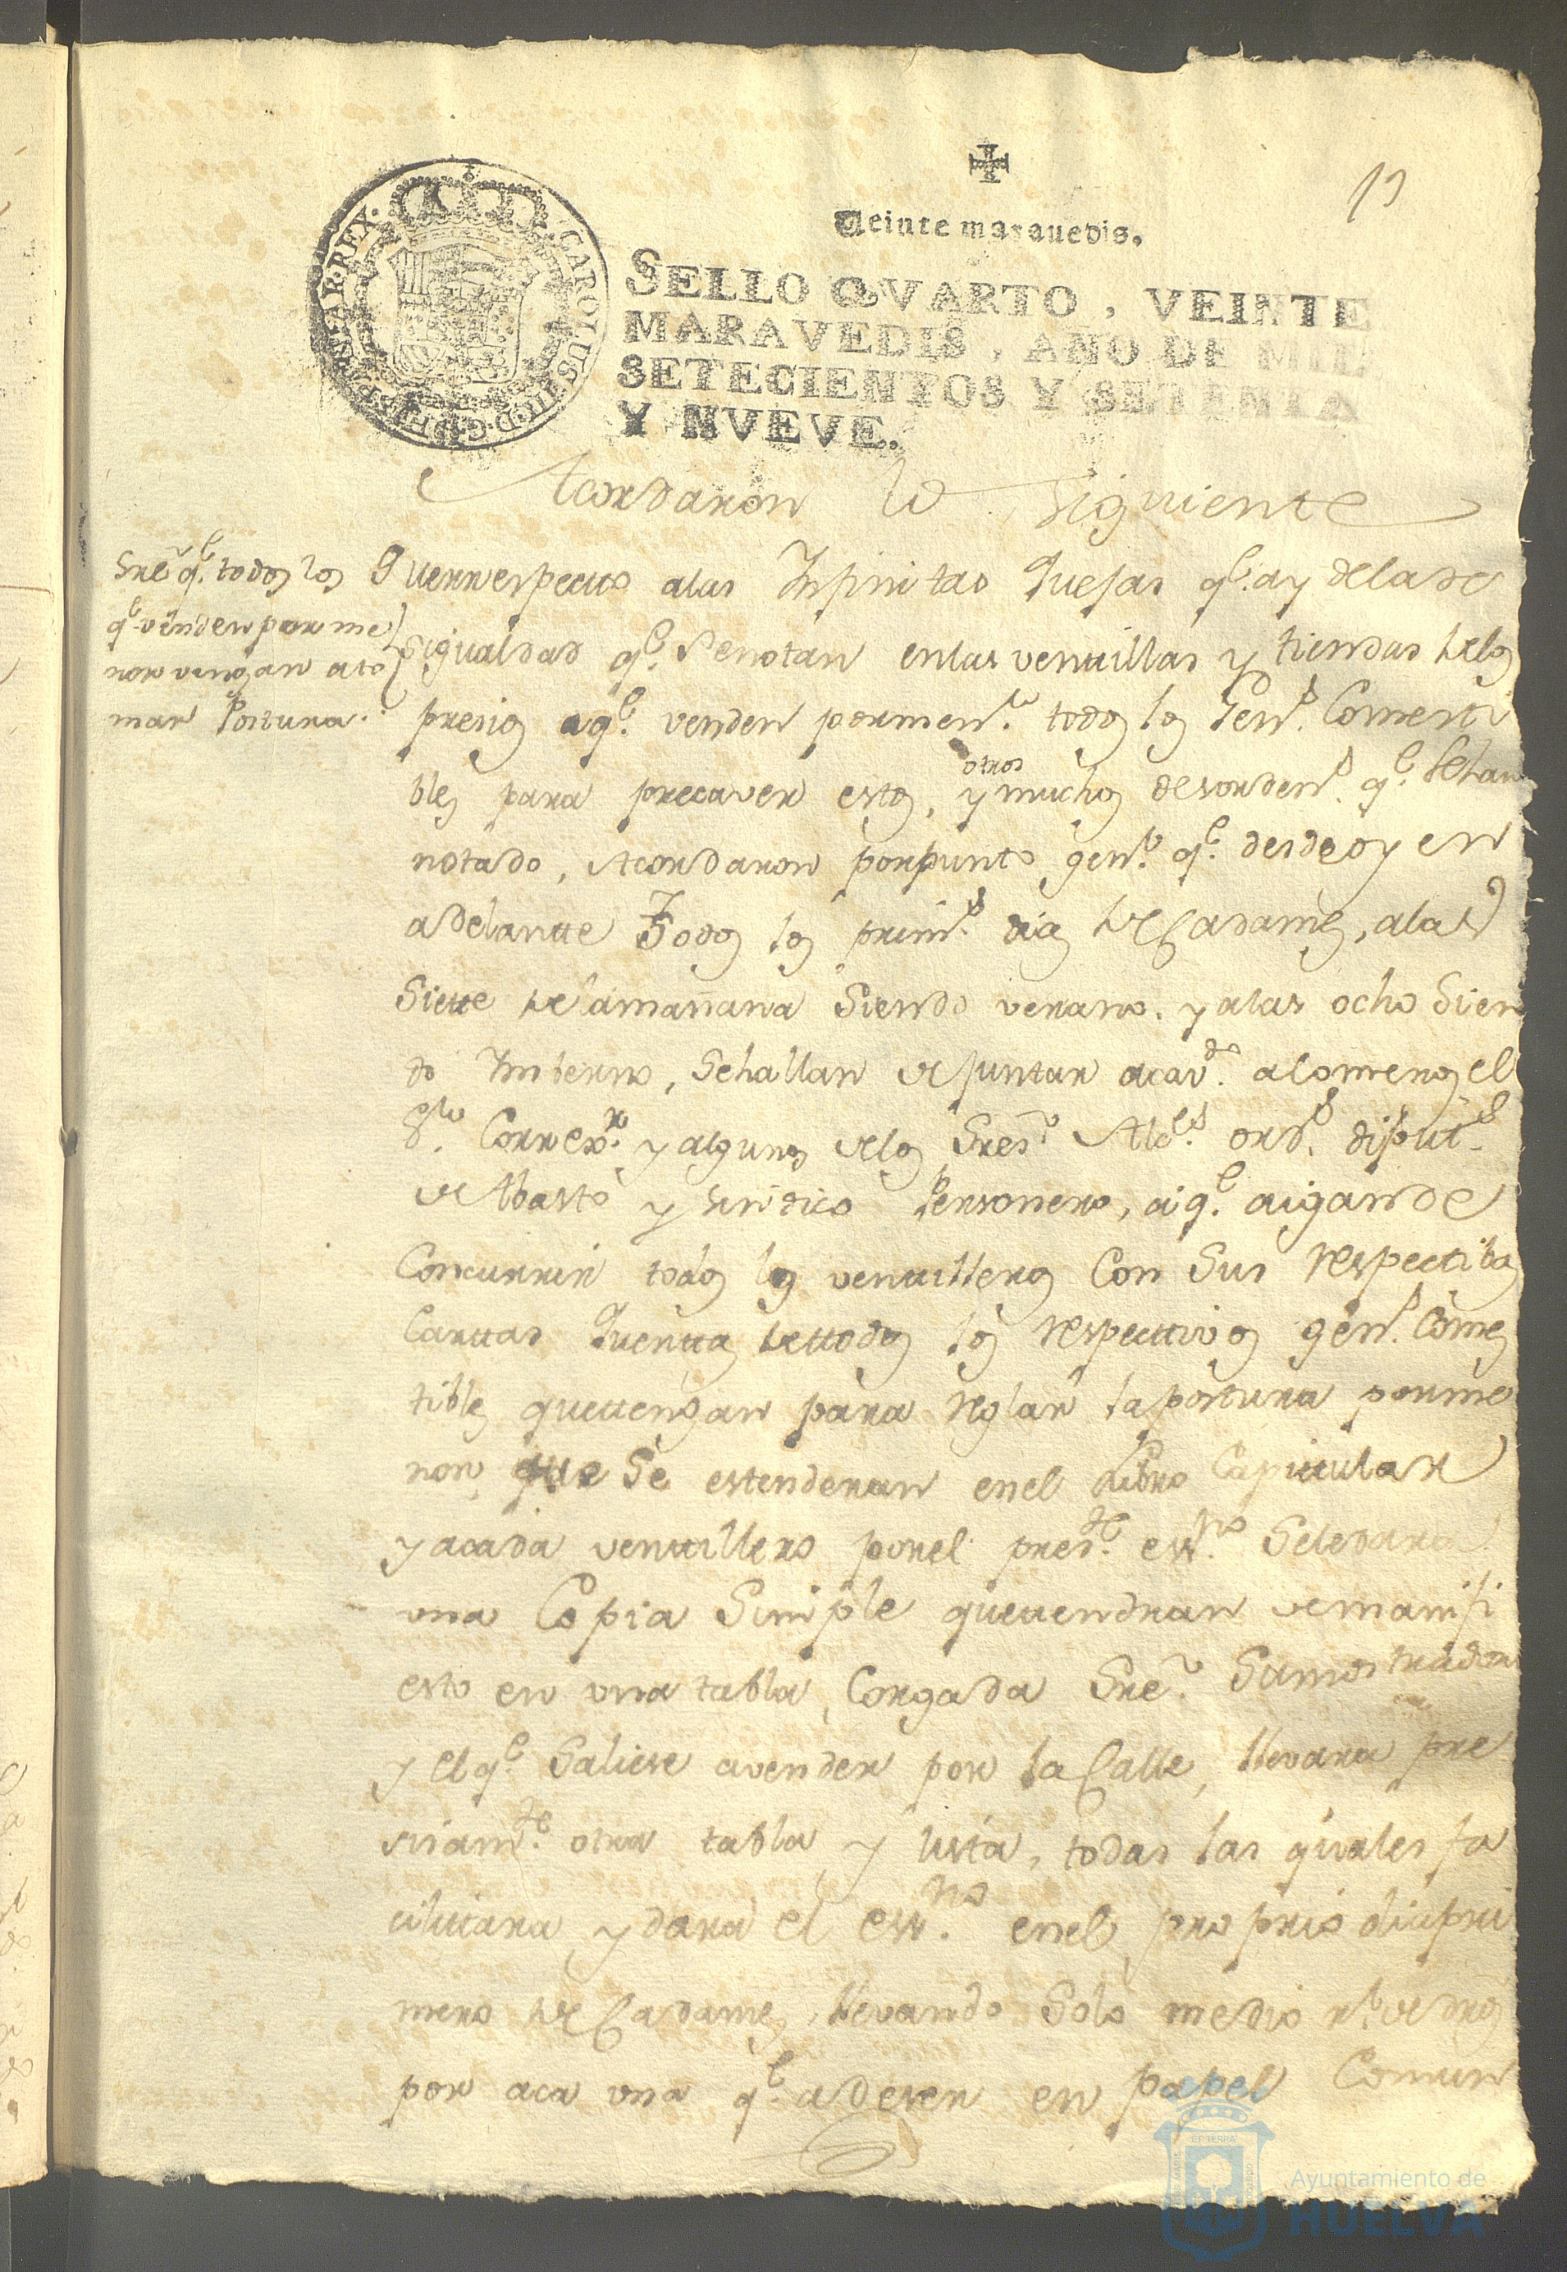 13
Veinte maravedis.
SELLO QVARTO, VEINTE
MARAVEDIS, AÑO DE MIL
SETECIENTOS Y SETENTA
Y NVEVE.
CAROLUS III D G HISPANIAR REX
Acordaron lo siguiente
Sre q.e todos los
q.e venden por me
nor vengan a to
mar Postura.
Querrespecto alas Infinitas Quejas q.e ay dela de
sigualdad q.e Senotan enlas ventillas y tiendas delos
presios aq.e venden pormen.r todos los Gen.s Comesti
bles para precaver estos, y muchos otros desorden.s q.e Sehan
notado, Acordaron porpunto gen.l q.e desdeoy en
adelantte Todos los prim.s dias de Cadames, alas
Siette delamañana Siendo verano. y alas ocho Sien
do Imbierno, Sehallan de juntar acav.do alomenos el
S.or Correx.r y algunos delos Sres. Alc.es ord.s diput.s
de Abasto y Sindico Personero, aiq.e aigande
Concurrir todos los ventilleros Con Sus respectibas
Carttas Quentas dettodos los respecttivos gen.s Comes
tibles quevengan para reglar lapostura porme
nor, que Se estenderan enel Libro Capittular
yacada ventillero porel pres.te ess.no Seledara
una Copia Simple quetendran demanifi
esto en una tabla, Corgada Sre. Sumostrador
y elq.e Saliese avender por la Calle, llevara pre
sisam.te otra tabla y lista, todas las quales fa
cilitara y dara el ess.no enel proprio diapri
mero de Cadames, llevando Solo medio r.l de dros
por aca una q.e adeser en papel Comun
Ayuntamiento de
HUELVA